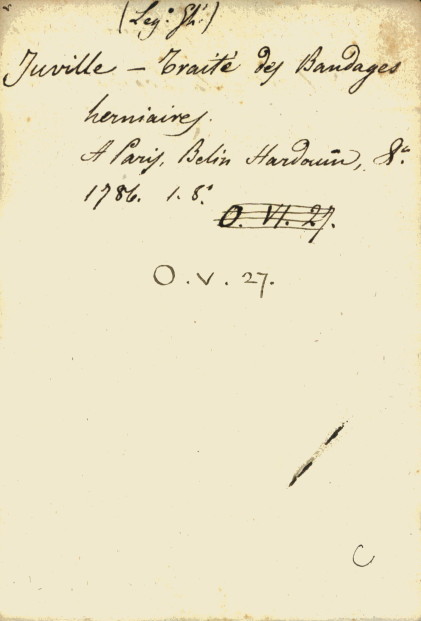 (Leg.º Gh.)
Juville – Traité des Bandages
herniaires.
A Paris, Belin Hardouin, &.ª
1786. 1. 8.º
O. VI. 27.
O. V. 27.
C